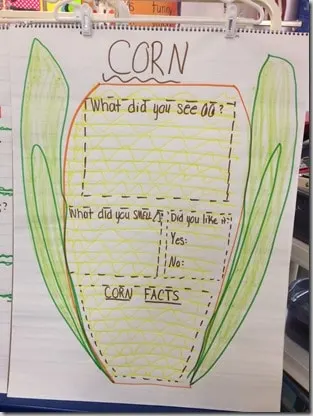 CORN
What did you see ?
What did you SMELL ?
Did you like it:
Yes:
No:
CORN FACTS